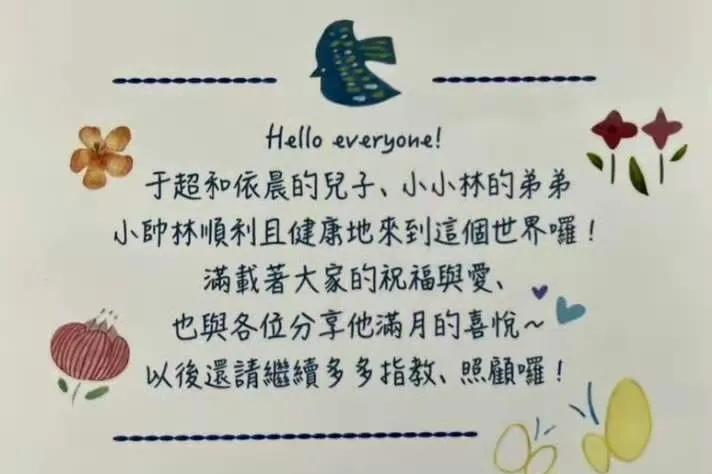 Hello everyone!
于超和依晨的兒子、小小林的弟弟
小帥林順利且健康地來到這個世界囉！
滿載著大家的祝福與愛、
也與各位分享他滿月的喜悅~
以後還請繼續多多指教、照顧囉！